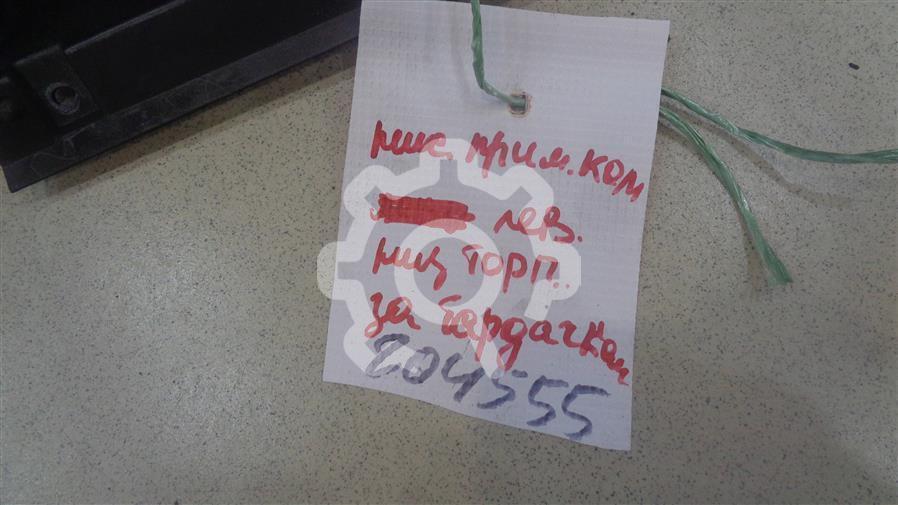 ник. прим. ком
лев.
ниц торп..
за бардачком
204555